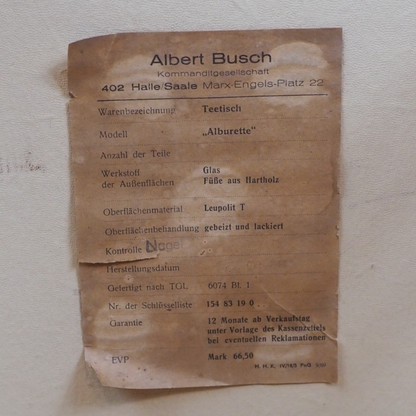 Albert Busch
Kommanditgesellschaft
402 Halle/Saale Marx-Engels-Platz 22
Warenbezeichnung Teetisch
Modell „Alburette“
Anzahl der Teile
Werkstoff der Außenflächen Glas
Füße aus Hartholz
Oberflächenmaterial Leupolit T
Oberflächenbehandlung gebeizt und lackiert
Kontrolle Nagel
Herstellungsdatum
Gefertigt nach TGL 6074 Bl. 1
Nr. der Schlüsselliste 154 83 19 0
Garantie 12 Monate ab Verkaufstag
unter Vorlage des Kassenzettels
bei eventuellen Reklamationen
EVP Mark 66,50